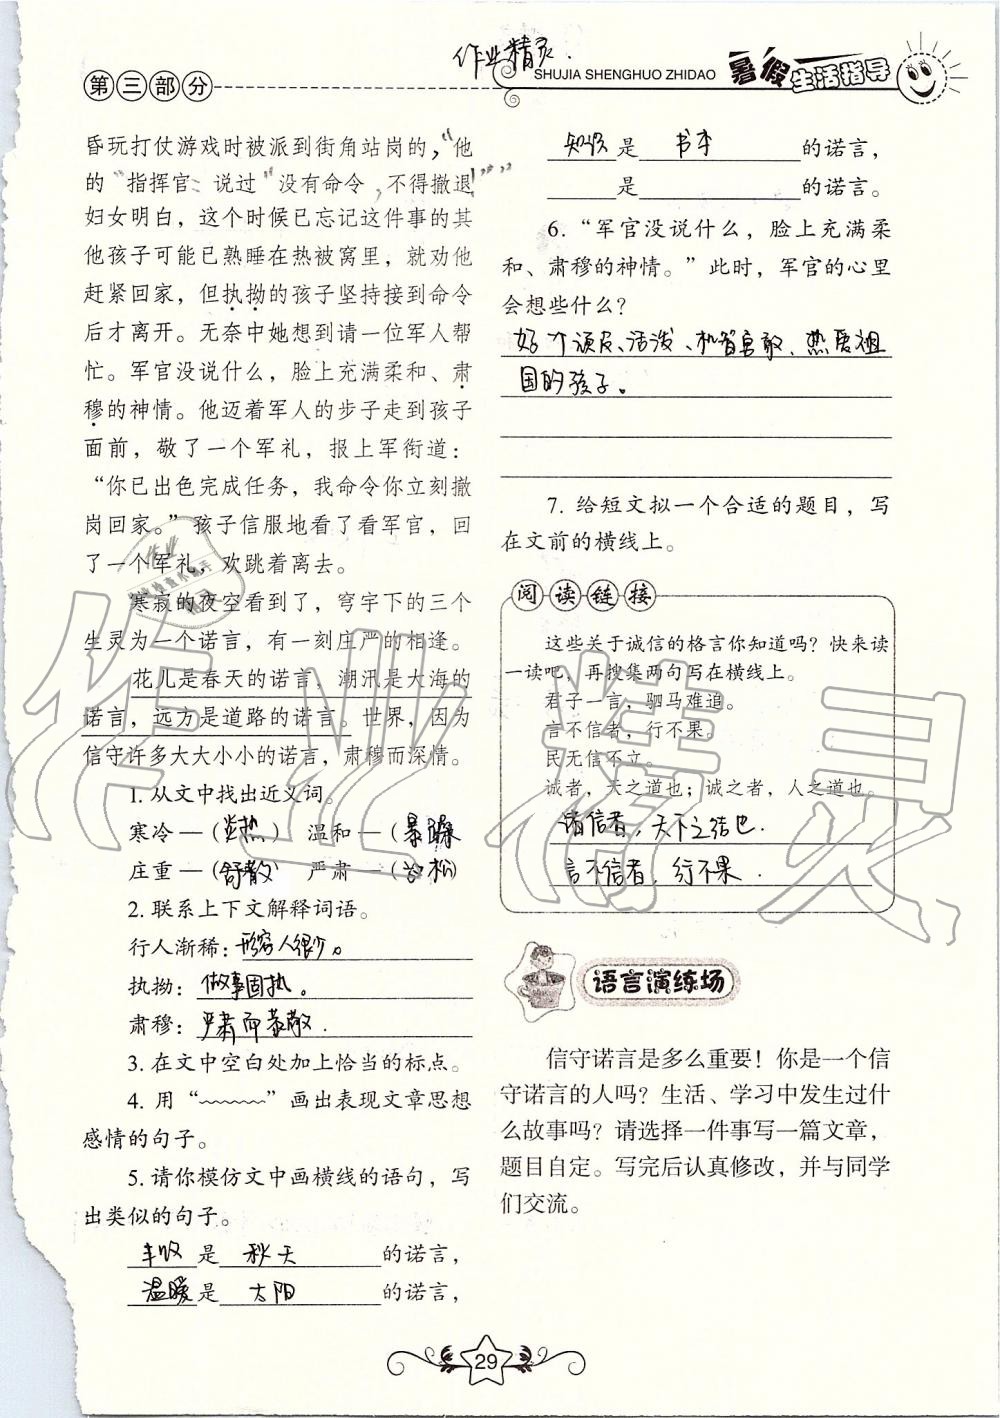 作业精灵.
第三部分
SHUJIA SHENGHUO ZHIDAO
暑假生活指导
昏玩打仗游戏时被派到街角站岗的，“他
的“指挥官 说过“没有命令，不得撤退！”””
妇女明白，这个时候已忘记这件事的其
他孩子可能已熟睡在热被窝里，就劝他
赶紧回家，但执拗的孩子坚持接到命令
后才离开。无奈中她想到请一位军人帮
忙。军官没说什么，脸上充满柔和、肃
穆的神情。他迈着军人的步子走到孩子
面前，敬了一个军礼，报上军衔道：
“你已出色完成任务，我命令你立刻撤
岗回家。”孩子信服地看了看军官，回
了一个军礼，欢跳着离去。
寒寂的夜空看到了，穹宇下的三个
生灵为一个诺言，有一刻庄严的相逢。
花儿是春天的诺言，潮汛是大海的
诺言，远方是道路的诺言。世界，因为
信守许多大大小小的诺言，肃穆而深情。
1. 从文中找出近义词。
寒冷—（炎热） 温和—（暴躁）
庄重—（舒散） 严肃—（松）
2. 联系上下文解释词语。
行人渐稀：形容人很少。
执拗：做事固执。
肃穆：严肃而恭敬.
3. 在文中空白处加上恰当的标点。
4. 用“﹏﹏﹏”画出表现文章思想
感情的句子。
5. 请你模仿文中画横线的语句，写
出类似的句子。
丰收是 秋天 的诺言，
温暖是 太阳 的诺言，
知识是 书本 的诺言，
是 的诺言。
6. “军官没说什么，脸上充满柔
和、肃穆的神情。”此时，军官的心里
会想些什么？
好个顽皮、活泼、机智勇敢、热爱祖
国的孩子。
7. 给短文拟一个合适的题目，写
在文前的横线上。
阅读链接
这些关于诚信的格言你知道吗？快来读
一读吧，再搜集两句写在横线上。
君子一言，驷马难追。
言不信者，行不果。
民无信不立。
诚者，天之道也；诚之者，人之道也。
诸信者，天下之结也.
言不信者，行不果.
语言演练场
信守诺言是多么重要！你是一个信
守诺言的人吗？生活、学习中发生过什
么故事吗？请选择一件事写一篇文章，
题目自定。写完后认真修改，并与同学
们交流。
29
作业精灵